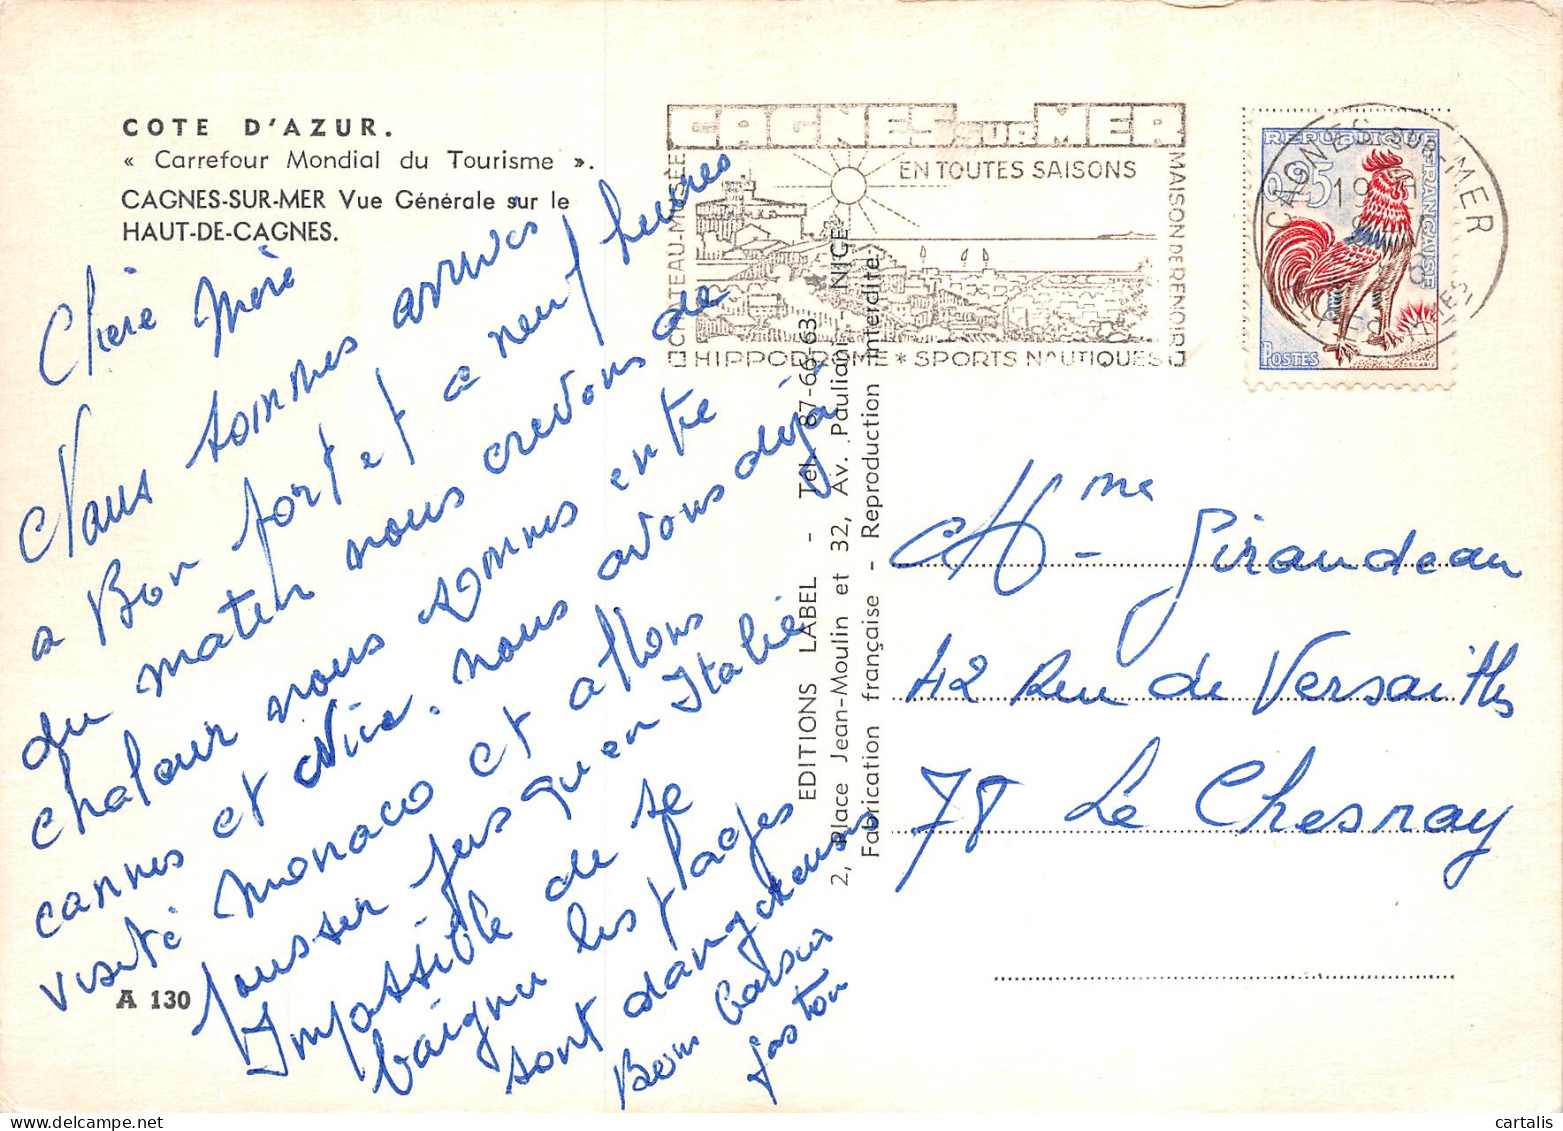 COTE D'AZUR.
« Carrefour Mondial du Tourisme ».
CAGNES-SUR-MER Vue Générale sur le
HAUT-DE-CAGNES.
Chere Meré
Nous sommes arrivés
a Bon port et a neuf heures
du maten nous crevons de
chaleur nous sommes entre
cannes et Nice. nous avons déjà
visité monaco et allons
pousser jusqu'en Italie
Impossible de se
baigner les plages
sont dangereuses
Bons baisers
gaston
A 130
EDITIONS LABEL - Tel. 87-66-63
2, Place Jean-Moulin et 32, Av. Pauliani - NICE
Fabrication française - Reproduction interdite.
CAGNES SUR MER
EN TOUTES SAISONS
CHATEAU-MUSÉE
MAISON DE RENOIR
HIPPODROME * SPORTS NAUTIQUES
CAGNES SUR MER
19
REPUBLIQUE FRANÇAISE
0,25
POSTES
DECARIS
Mme Giraudeau
42 Rue de Versailles
78 Le Chesnay
cartalis